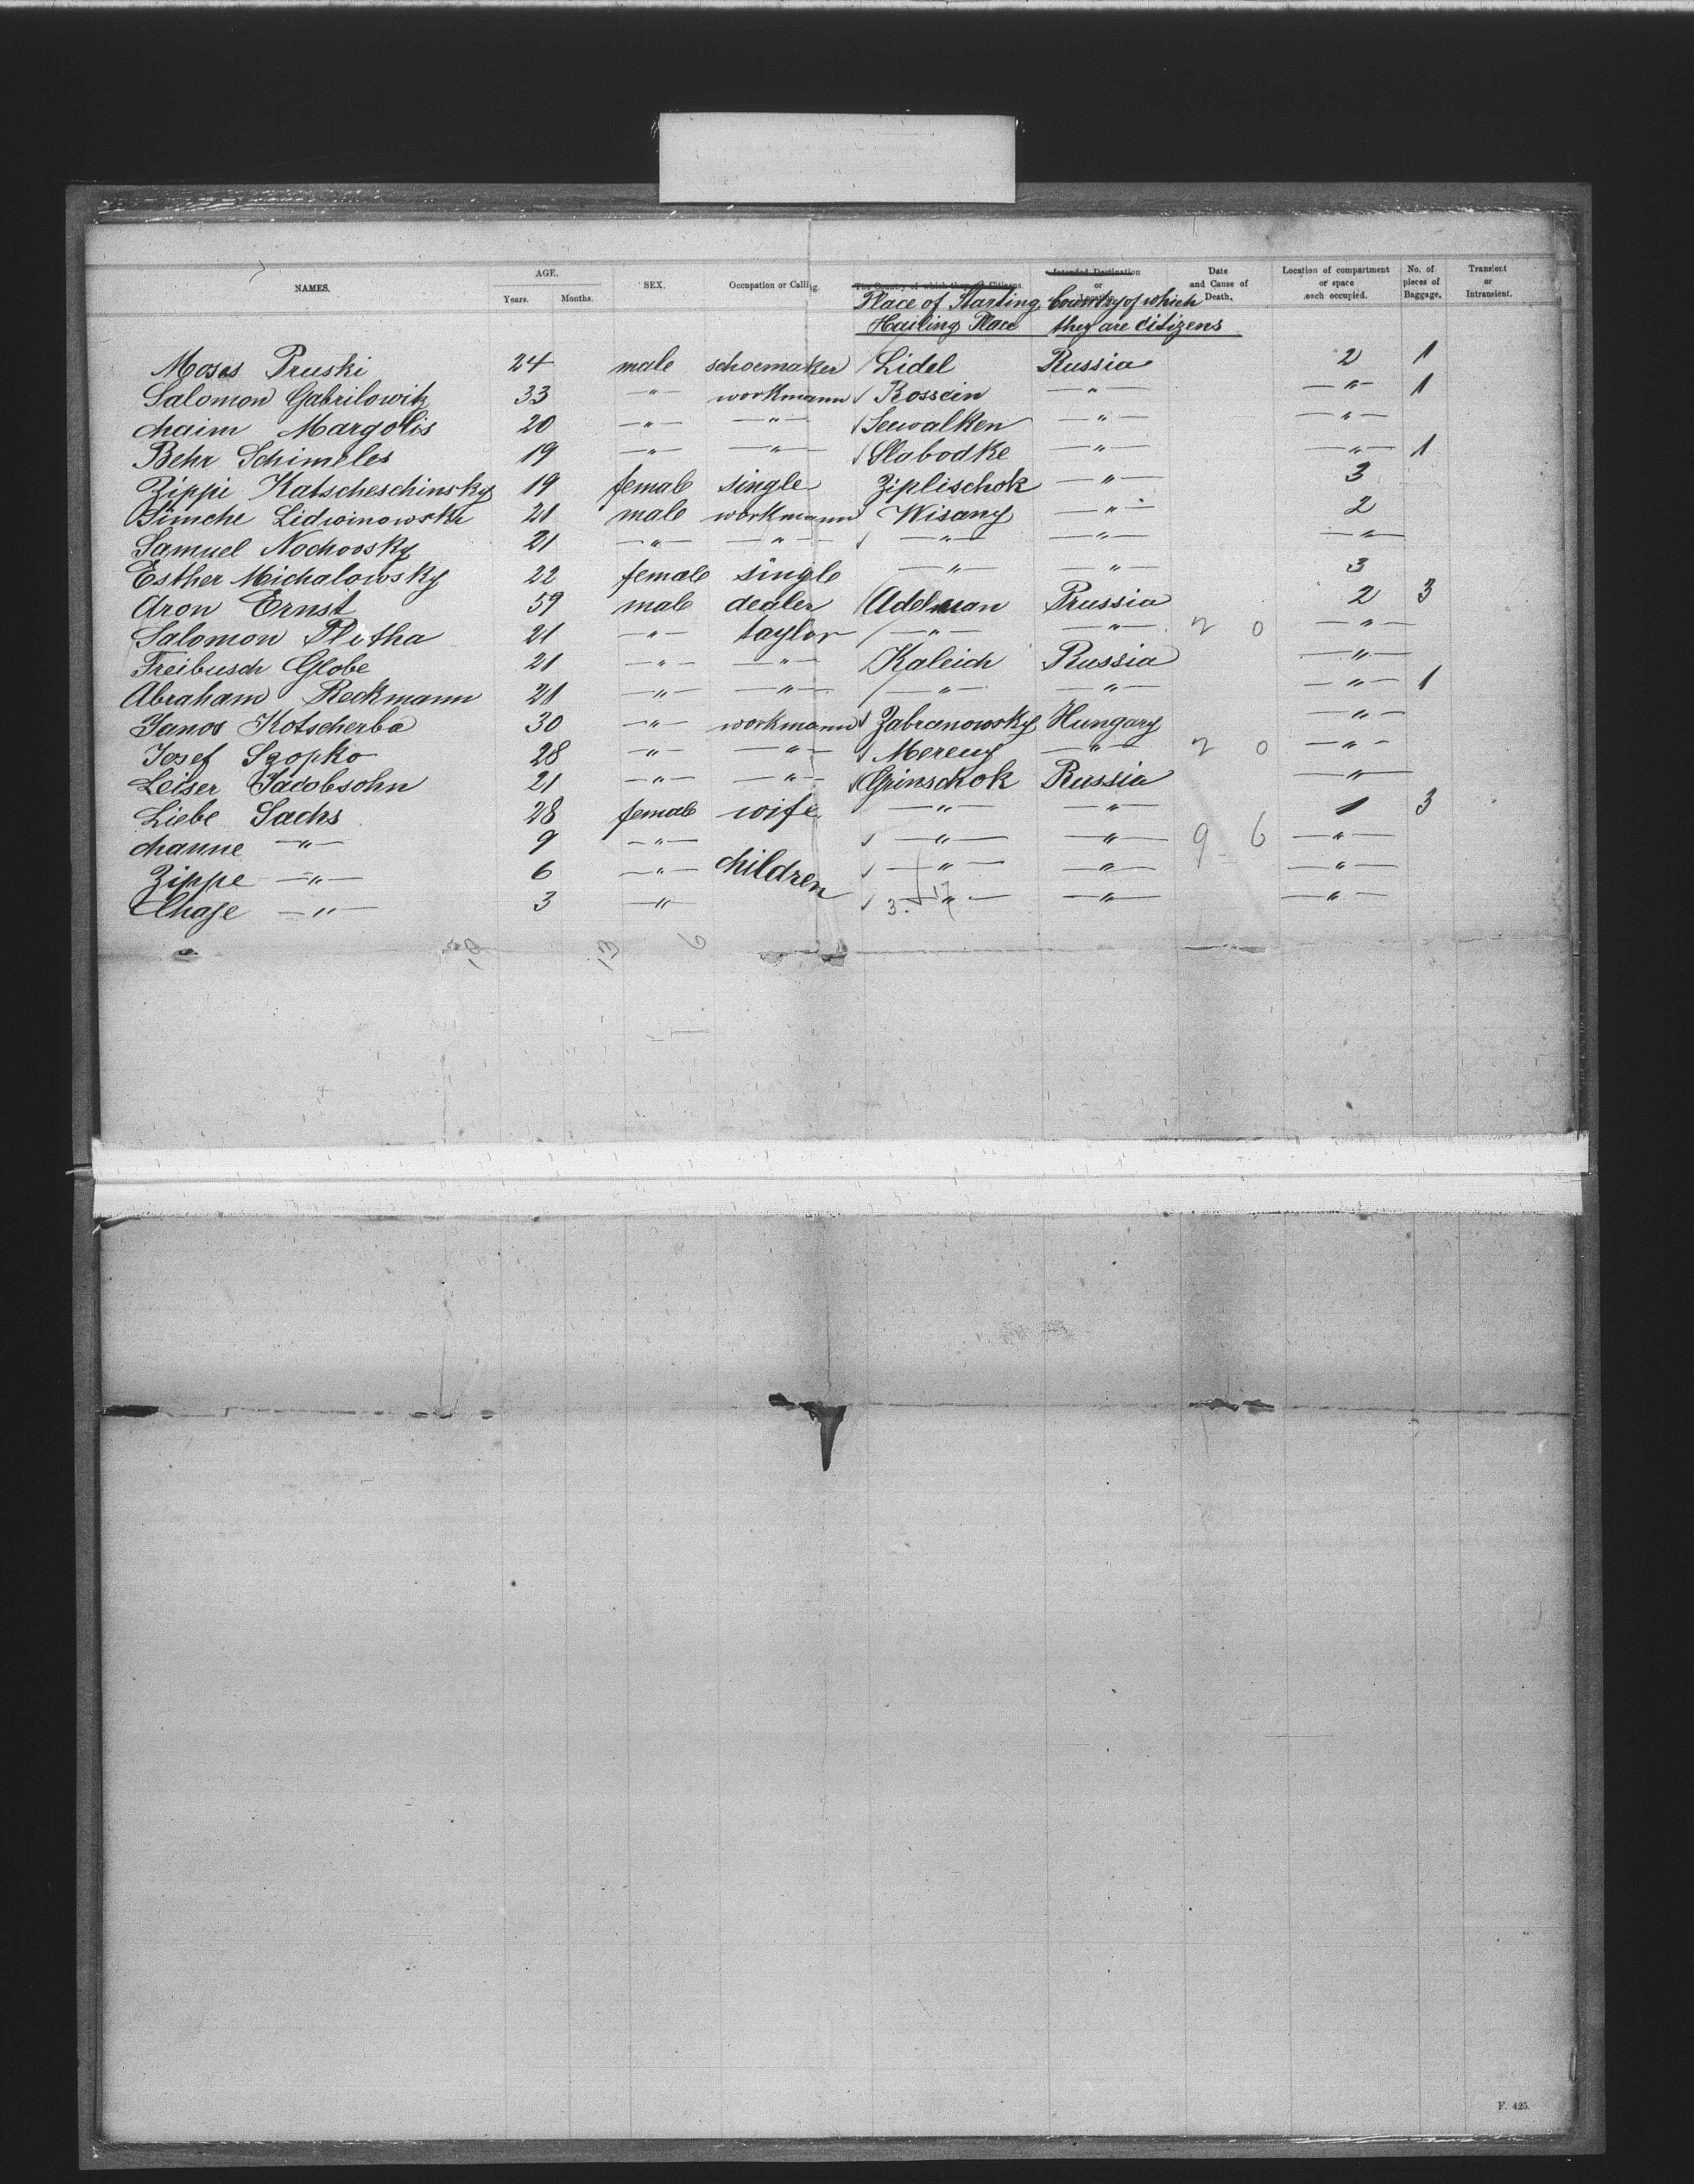 NAMES. AGE. Years. Months. SEX. Occupation or Calling. The Country of which they are Citizens. Intended Destination or Date and Cause of Death. Location of compartment or space each occupied. No. of pieces of Baggage. Transient or Intransient.
Place of Starting Country of which
Hailing Place they are citizens
Moses Pruski 24 male schoemaker Lidel Russia 2 1
Salomon Gabrilowitz 33 —"— workmann Rossein —"— —"— 1
Chaim Margolis 20 —"— —"— Seewalken —"— —"—
Behr Schimeles 19 —"— —"— Slabodke —"— —"— 1
Zippi Katscheschinsky 19 female single Ziplischok —"— 3
Simche Lidwinowski 21 male workmann Wisany —"— 2
Samuel Nochovsky 21 —"— —"— —"— —"— —"—
Esther Michalowsky 22 female single —"— —"— 3
Aron Ernst 59 male dealer Adelman Prussia 2 3
Salomon Plotha 21 —"— taylor —"— —"— 2 0 —"—
Freibusch Globe 21 —"— —"— Kaleich Russia —"—
Abraham Reckmann 21 —"— —"— —"— —"— —"— 1
Janos Kotscherba 30 —"— workmann Zabranowsky Hungary —"—
Josef Szopko 28 —"— —"— Mereny —"— 2 0 —"—
Leiser Jacobsohn 21 —"— —"— Grinschok Russia —"—
Liebe Sachs 28 female wife —"— —"— 1 3
Channe —"— 9 —"— —"— —"— 9 6 —"—
Zippe —"— 6 —"— children —"— —"— —"—
Chaje —"— 3 —"— —"— —"— —"—
3. 17
19 13 6
F. 425.